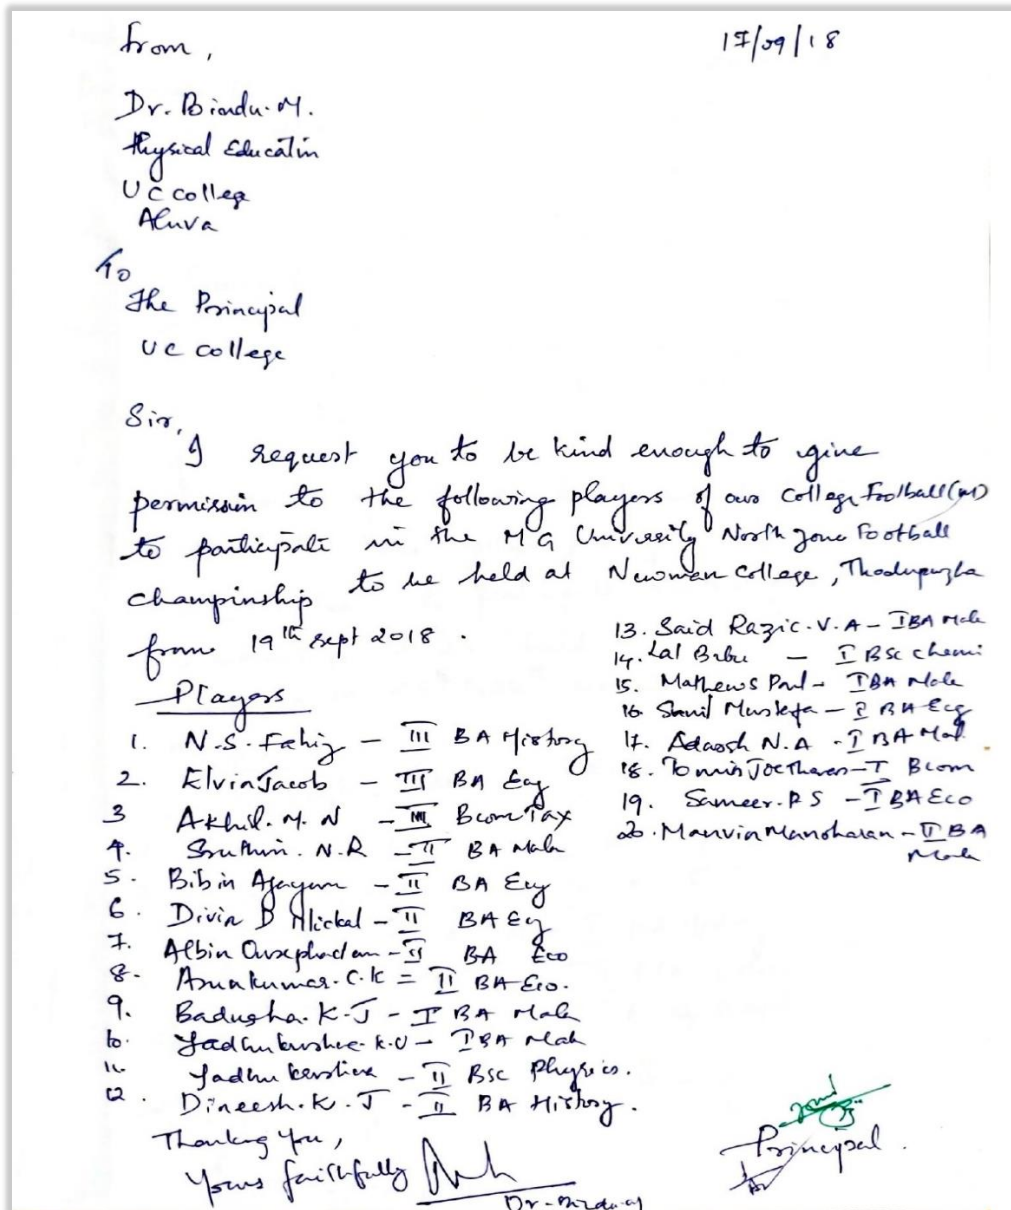 from,
17/09/18
Dr. Bindu. M.
Physical Educatin
UC college
Aluva
To
The Principal
UC college
Sir,
I request you to be kind enough to give
permission to the following players of our College Football (M)
to participate in the MG University North zone Football
champinship to be held at Newman College, Thodupuzha
from 19th sept 2018.
Players
1. N.S. Fahiz - III BA History
2. Elvin Jacob - III BA Eng
3 Akhil. M. N - III Bcom Tax
4. Sruthin. N.R - II BA Mala
5. Bibin - II BA Eng
6. Divin B - II BA Eng
7. Albin - II BA Eco
8. C.K = II BA Eco.
9. Badusha. K-J - I BA Mala
10. K.U - I BA Mala
11. - II Bsc Physics.
12. Dineesh. K. J - II BA History.
13. Said Razic. V. A - I BA Mala
14. Lal Babu - I BSc chemi
15. Mathews Paul - I BA Mala
16. Mustafa - I BA Eng
17. Adarsh N.A - I BA Mal
18. - I Bcom
19. Sameer. P S - I BA Eco
20. Manvin Manoharan - II BA
Mala
Thanking You,
Yours faithfully
Principal.